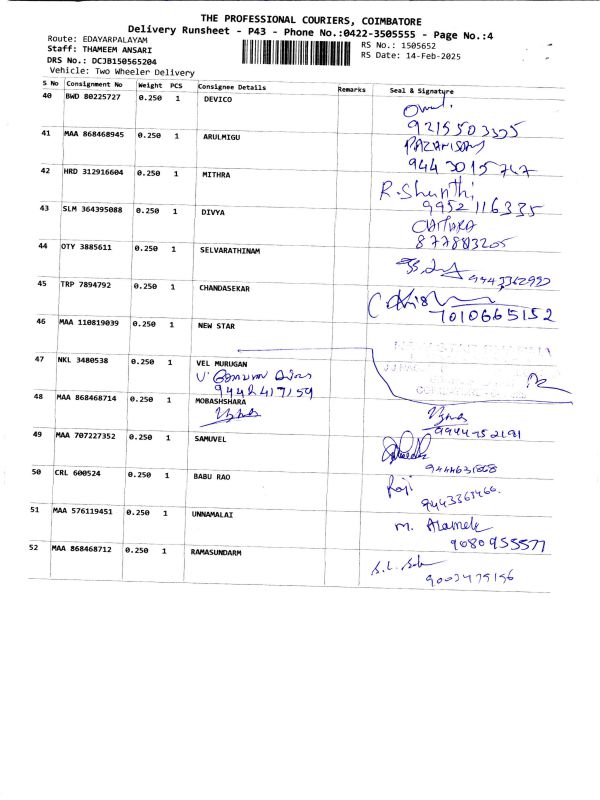 THE PROFESSIONAL COURIERS, COIMBATORE
Delivery Runsheet - P43 - Phone No.:0422-3505555 - Page No.:4
Route: EDAYARPALAYAM
RS No.: 1505652
Staff: THAMEEM ANSARI
RS Date: 14-Feb-2025
DRS No.: DCJB150565204
Vehicle: Two Wheeler Delivery
S No Consignment No Weight PCS Consignee Details Remarks Seal & Signature
40 BWD 80225727 0.250 1 DEVICO
9215503335
41 MAA 868468945 0.250 1 ARULMIGU
9443015767
42 HRD 312916604 0.250 1 MITHRA
R. Shanthi
9952116335
43 SLM 364395088 0.250 1 DIVYA
877883205
44 OTY 3885611 0.250 1 SELVARATHINAM
9443362992
45 TRP 7894792 0.250 1 CHANDASEKAR
7010665152
46 MAA 110819039 0.250 1 NEW STAR
47 NKL 3480538 0.250 1 VEL MURUGAN
9442417159
48 MAA 868468714 0.250 1 MOBASHSHARA
9944752191
49 MAA 707227352 0.250 1 SAMUVEL
50 CRL 600524 0.250 1 BABU RAO
Raji
9443363466
51 MAA 576119451 0.250 1 UNNAMALAI
9080955577
52 MAA 868468712 0.250 1 RAMASUNDARM
9003475156